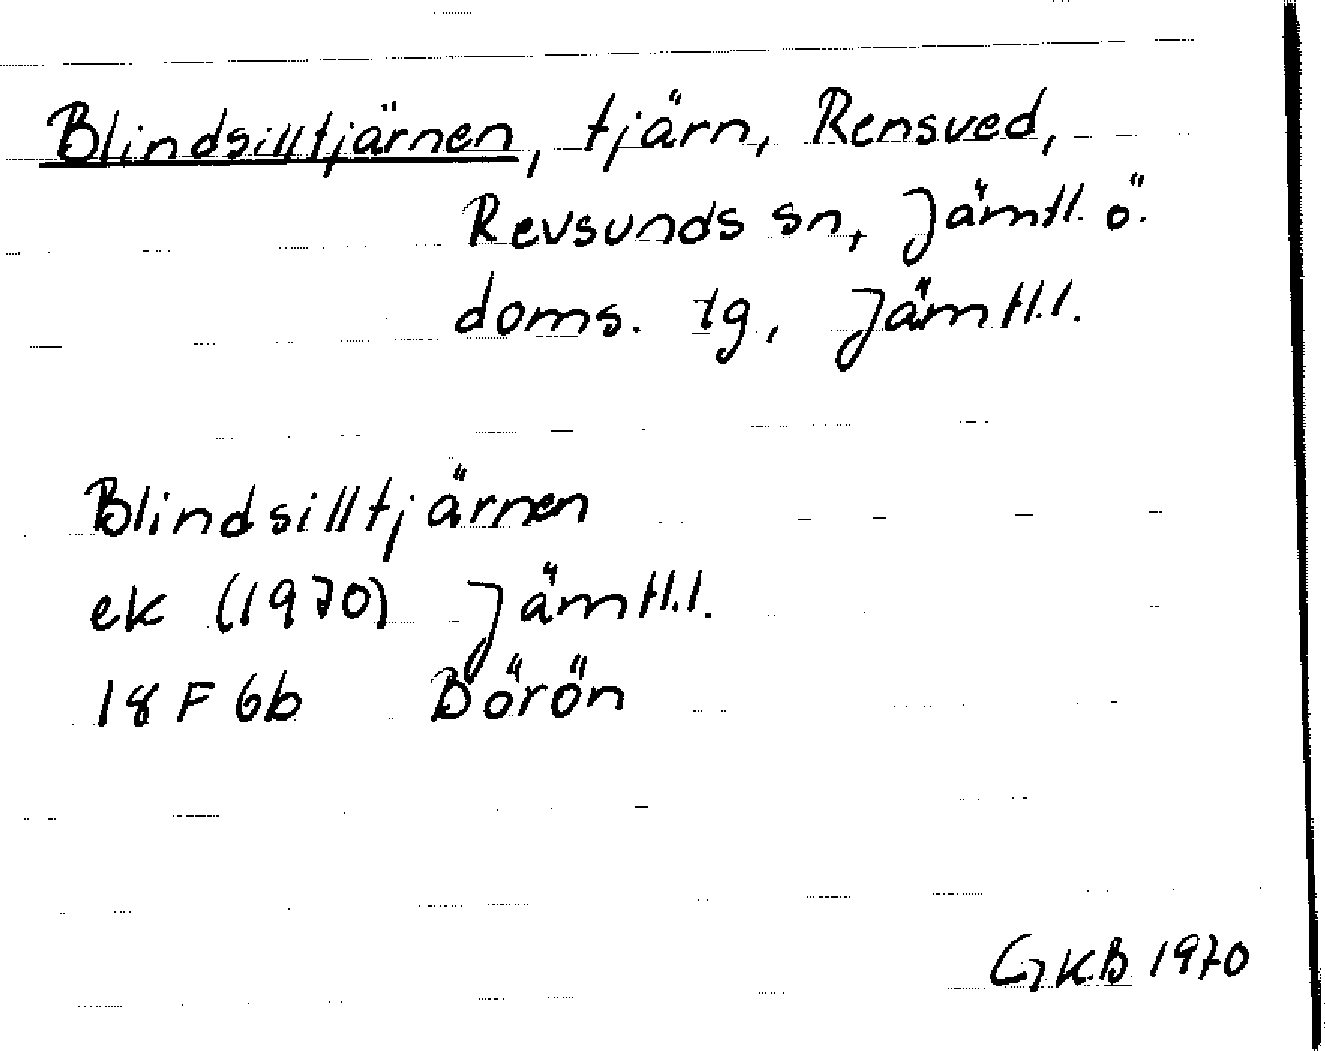 Blindsilltjärnen, tjärn, Rensved,
Revsunds sn, Jämtl. ö.
doms. tg, Jämtl.l.
Blindsilltjärnen
ek (1970) Jämtl.l.
18 F 6b Börön
GKB 1970